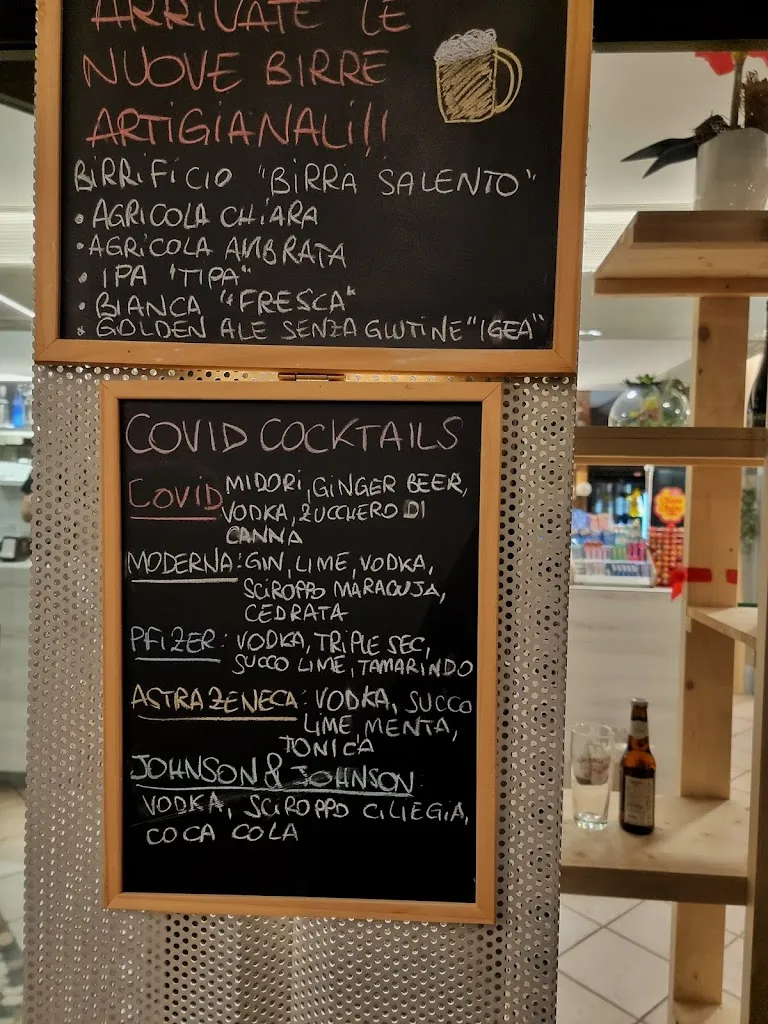 ARRIVATE LE
NUOVE BIRRE
ARTIGIANALI!!
BIRRIFICIO "BIRRA SALENTO"
• AGRICOLA CHIARA
• AGRICOLA AMBRATA
• IPA "TIPA"
• BIANCA "FRESCA"
• GOLDEN ALE SENZA GLUTINE "IGEA"
COVID COCKTAILS
COVID MIDORI, GINGER BEER,
VODKA, ZUCCHERO DI
CANNA
MODERNA: GIN, LIME, VODKA,
SCIROPPO MARACUJA,
CEDRATA
PFIZER: VODKA, TRIPLE SEC,
SUCCO LIME, TAMARINDO
ASTRAZENECA: VODKA, SUCCO
LIME, MENTA,
TONICA
JOHNSON & JOHNSON:
VODKA, SCIROPPO CILIEGIA,
COCA COLA